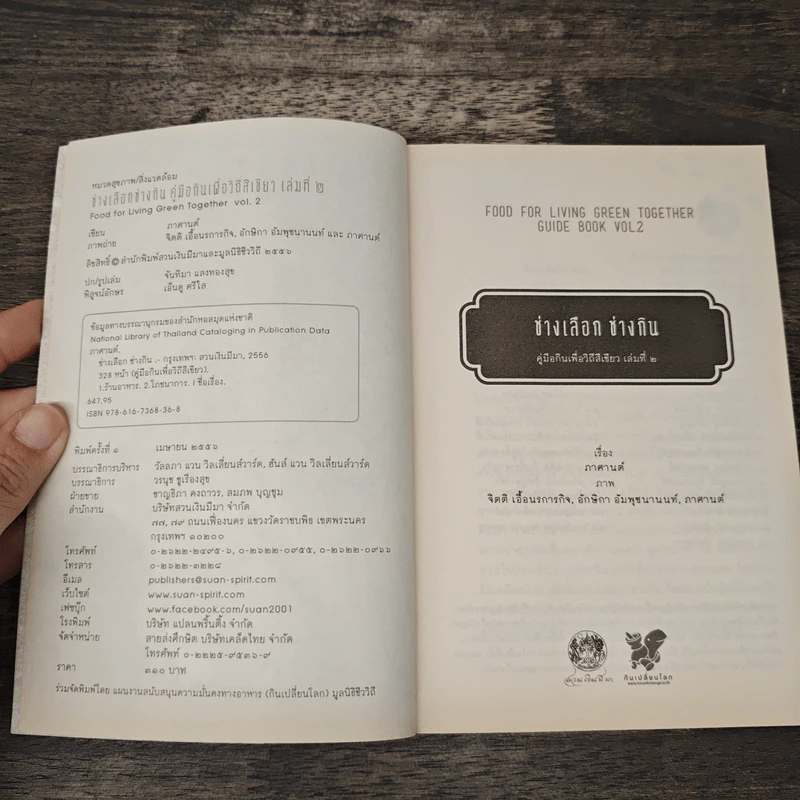 หมวดสุขภาพ/สิ่งแวดล้อม
ช่างเลือกช่างกิน คู่มือกินเพื่อวิถีสีเขียว เล่มที่ ๒
Food for Living Green Together vol. 2
เขียน ภาศานต์
ภาพถ่าย จิตติ เอื้อนรการกิจ, อักษิกา อัมพุชนานนท์ และ ภาศานต์
ลิขสิทธิ์ © สำนักพิมพ์สวนเงินมีมาและมูลนิธิชีววิถี ๒๕๕๖
ปก/รูปเล่ม จันทิมา แสงทองสุข
พิสูจน์อักษร เอ็นดู ศรีใส
ข้อมูลทางบรรณานุกรมของสำนักหอสมุดแห่งชาติ
National Library of Thailand Cataloging in Publication Data
ภาศานต์.
ช่างเลือก ช่างกิน .- กรุงเทพฯ: สวนเงินมีมา, 2556
328 หน้า (คู่มือกินเพื่อวิถีสีเขียว).
1.ร้านอาหาร. 2.โภชนาการ. I ชื่อเรื่อง.
647.95
ISBN 978-616-7368-36-8
พิมพ์ครั้งที่ ๑ เมษายน ๒๕๕๖
บรรณาธิการบริหาร วัลลภา แวน วิลเลียนส์วาร์ด, ฮันส์ แวน วิลเลียนส์วาร์ด
บรรณาธิการ วรนุช ชูเรืองสุข
ฝ่ายขาย ชาญธิภา คงถาวร, สมภพ บุญชุม
สำนักงาน บริษัทสวนเงินมีมา จำกัด
๗๗, ๗๙ ถนนเฟื่องนคร แขวงวัดราชบพิธ เขตพระนคร
กรุงเทพฯ ๑๐๒๐๐
โทรศัพท์ ๐-๒๖๒๒-๒๔๙๕-๖, ๐-๒๖๒๒-๐๙๕๕, ๐-๒๖๒๒-๐๙๖๖
โทรสาร ๐-๒๖๒๒-๓๒๒๘
อีเมล publishers@suan-spirit.com
เว็บไซต์ www.suan-spirit.com
เฟซบุ๊ก www.facebook.com/suan2001
โรงพิมพ์ บริษัท แปลนพริ้นติ้ง จำกัด
จัดจำหน่าย สายส่งศึกษิต บริษัทเคล็ดไทย จำกัด
โทรศัพท์ ๐-๒๒๒๕-๙๕๓๖-๙
ราคา ๓๑๐ บาท
ร่วมจัดพิมพ์โดย แผนงานสนับสนุนความมั่นคงทางอาหาร (กินเปลี่ยนโลก) มูลนิธิชีววิถี
FOOD FOR LIVING GREEN TOGETHER
GUIDE BOOK VOL2
ช่างเลือก ช่างกิน
คู่มือกินเพื่อวิถีสีเขียว เล่มที่ ๒
เรื่อง
ภาศานต์
ภาพ
จิตติ เอื้อนรการกิจ, อักษิกา อัมพุชนานนท์, ภาศานต์
สวนเงินมีมา
กินเปลี่ยนโลก